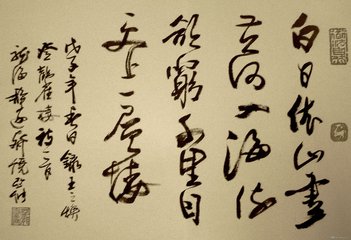 白日依山尽
黄河入海流
欲穷千里目
更上一层楼
戊子年春日录王之涣
登鹳雀楼诗一首